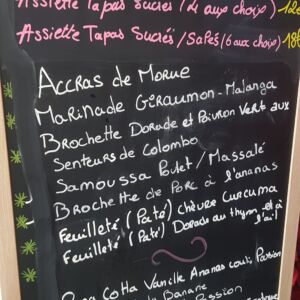 Assiette Tapas Sucrés (4 aux choix) 12€
Assiette Tapas Sucrés/Salés (6 aux choix) 18€
Accras de Morue
Marinade Giraumon-Malanga
Brochette Dorade et Poivron Verts aux
Senteurs de Colombo
Samoussa Poulet / Massalé
Brochette de Porc à l'ananas
Feuilleté (Paté) chèvre Curcuma
Feuilleté (Paté) Dorade au thym et à
l'ail
Cotta Vanille Ananas Coco, Passion
Banane
Passion